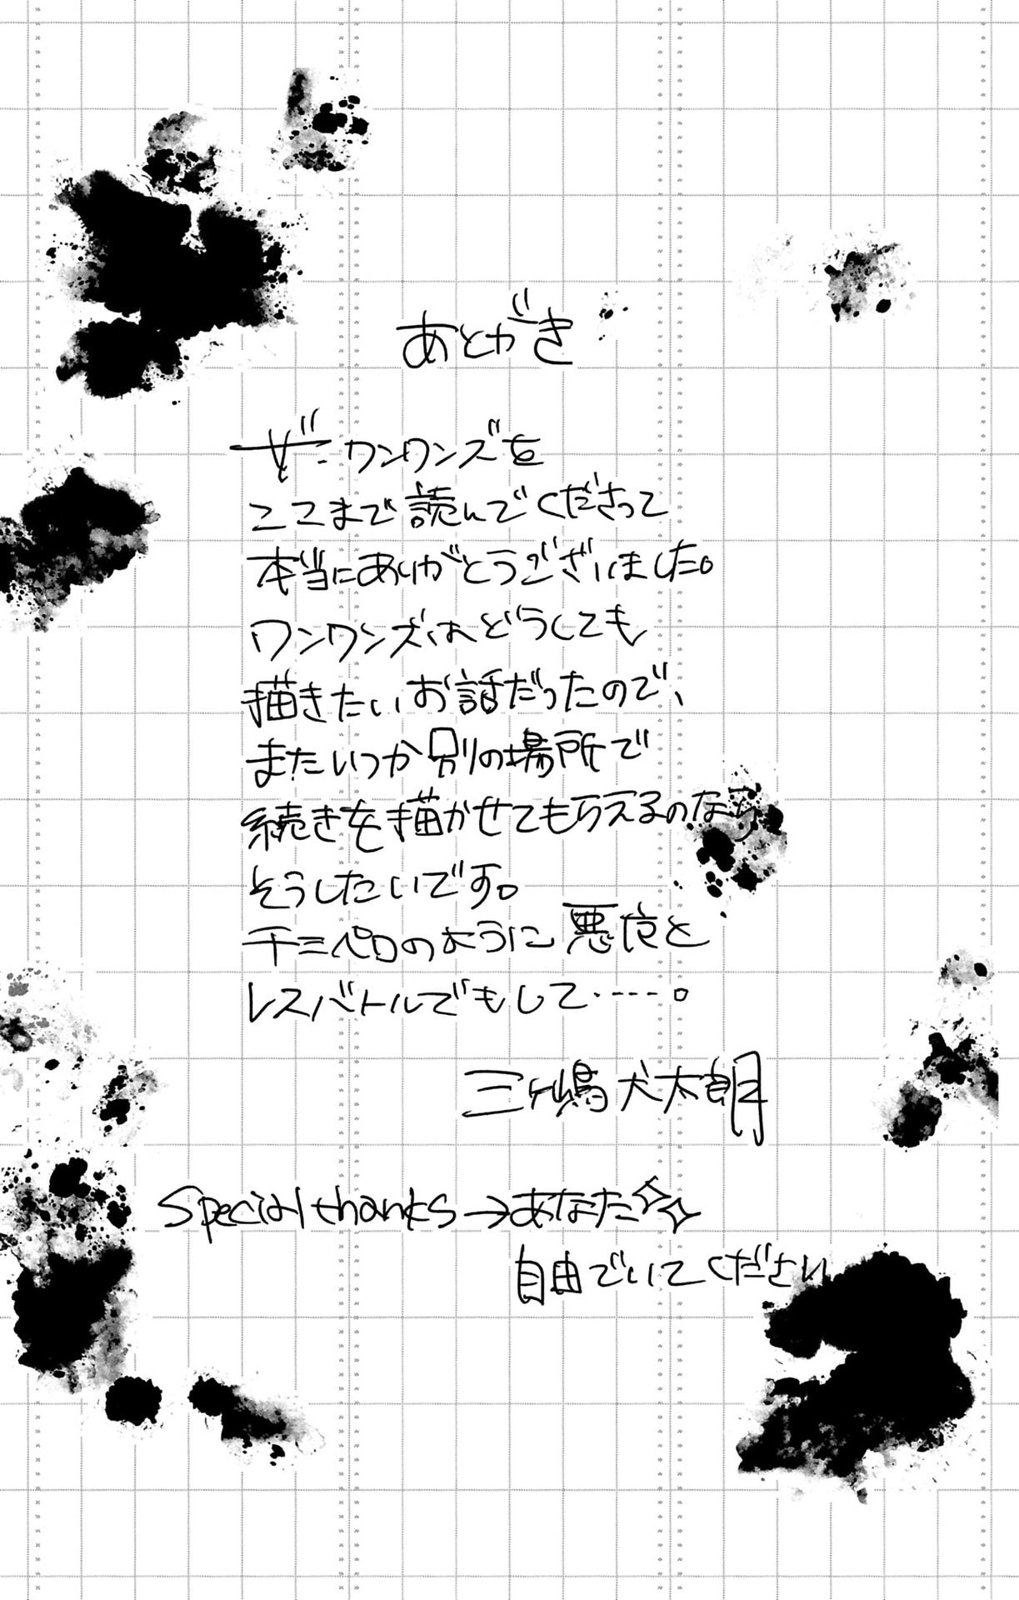 あとがき
ザ・ワンワンズを
ここまで読んでくださって
本当にありがとうございました。
ワンワンズはどうしても
描きたいお話だったので、
またいつか別の場所で
続きを描かせてもらえるのなら
そうしたいです。
チミペロのように悪夜と
レスバトルでもして……。
三ヶ嶋犬太朗
Special thanks→あなた
自由でいてください